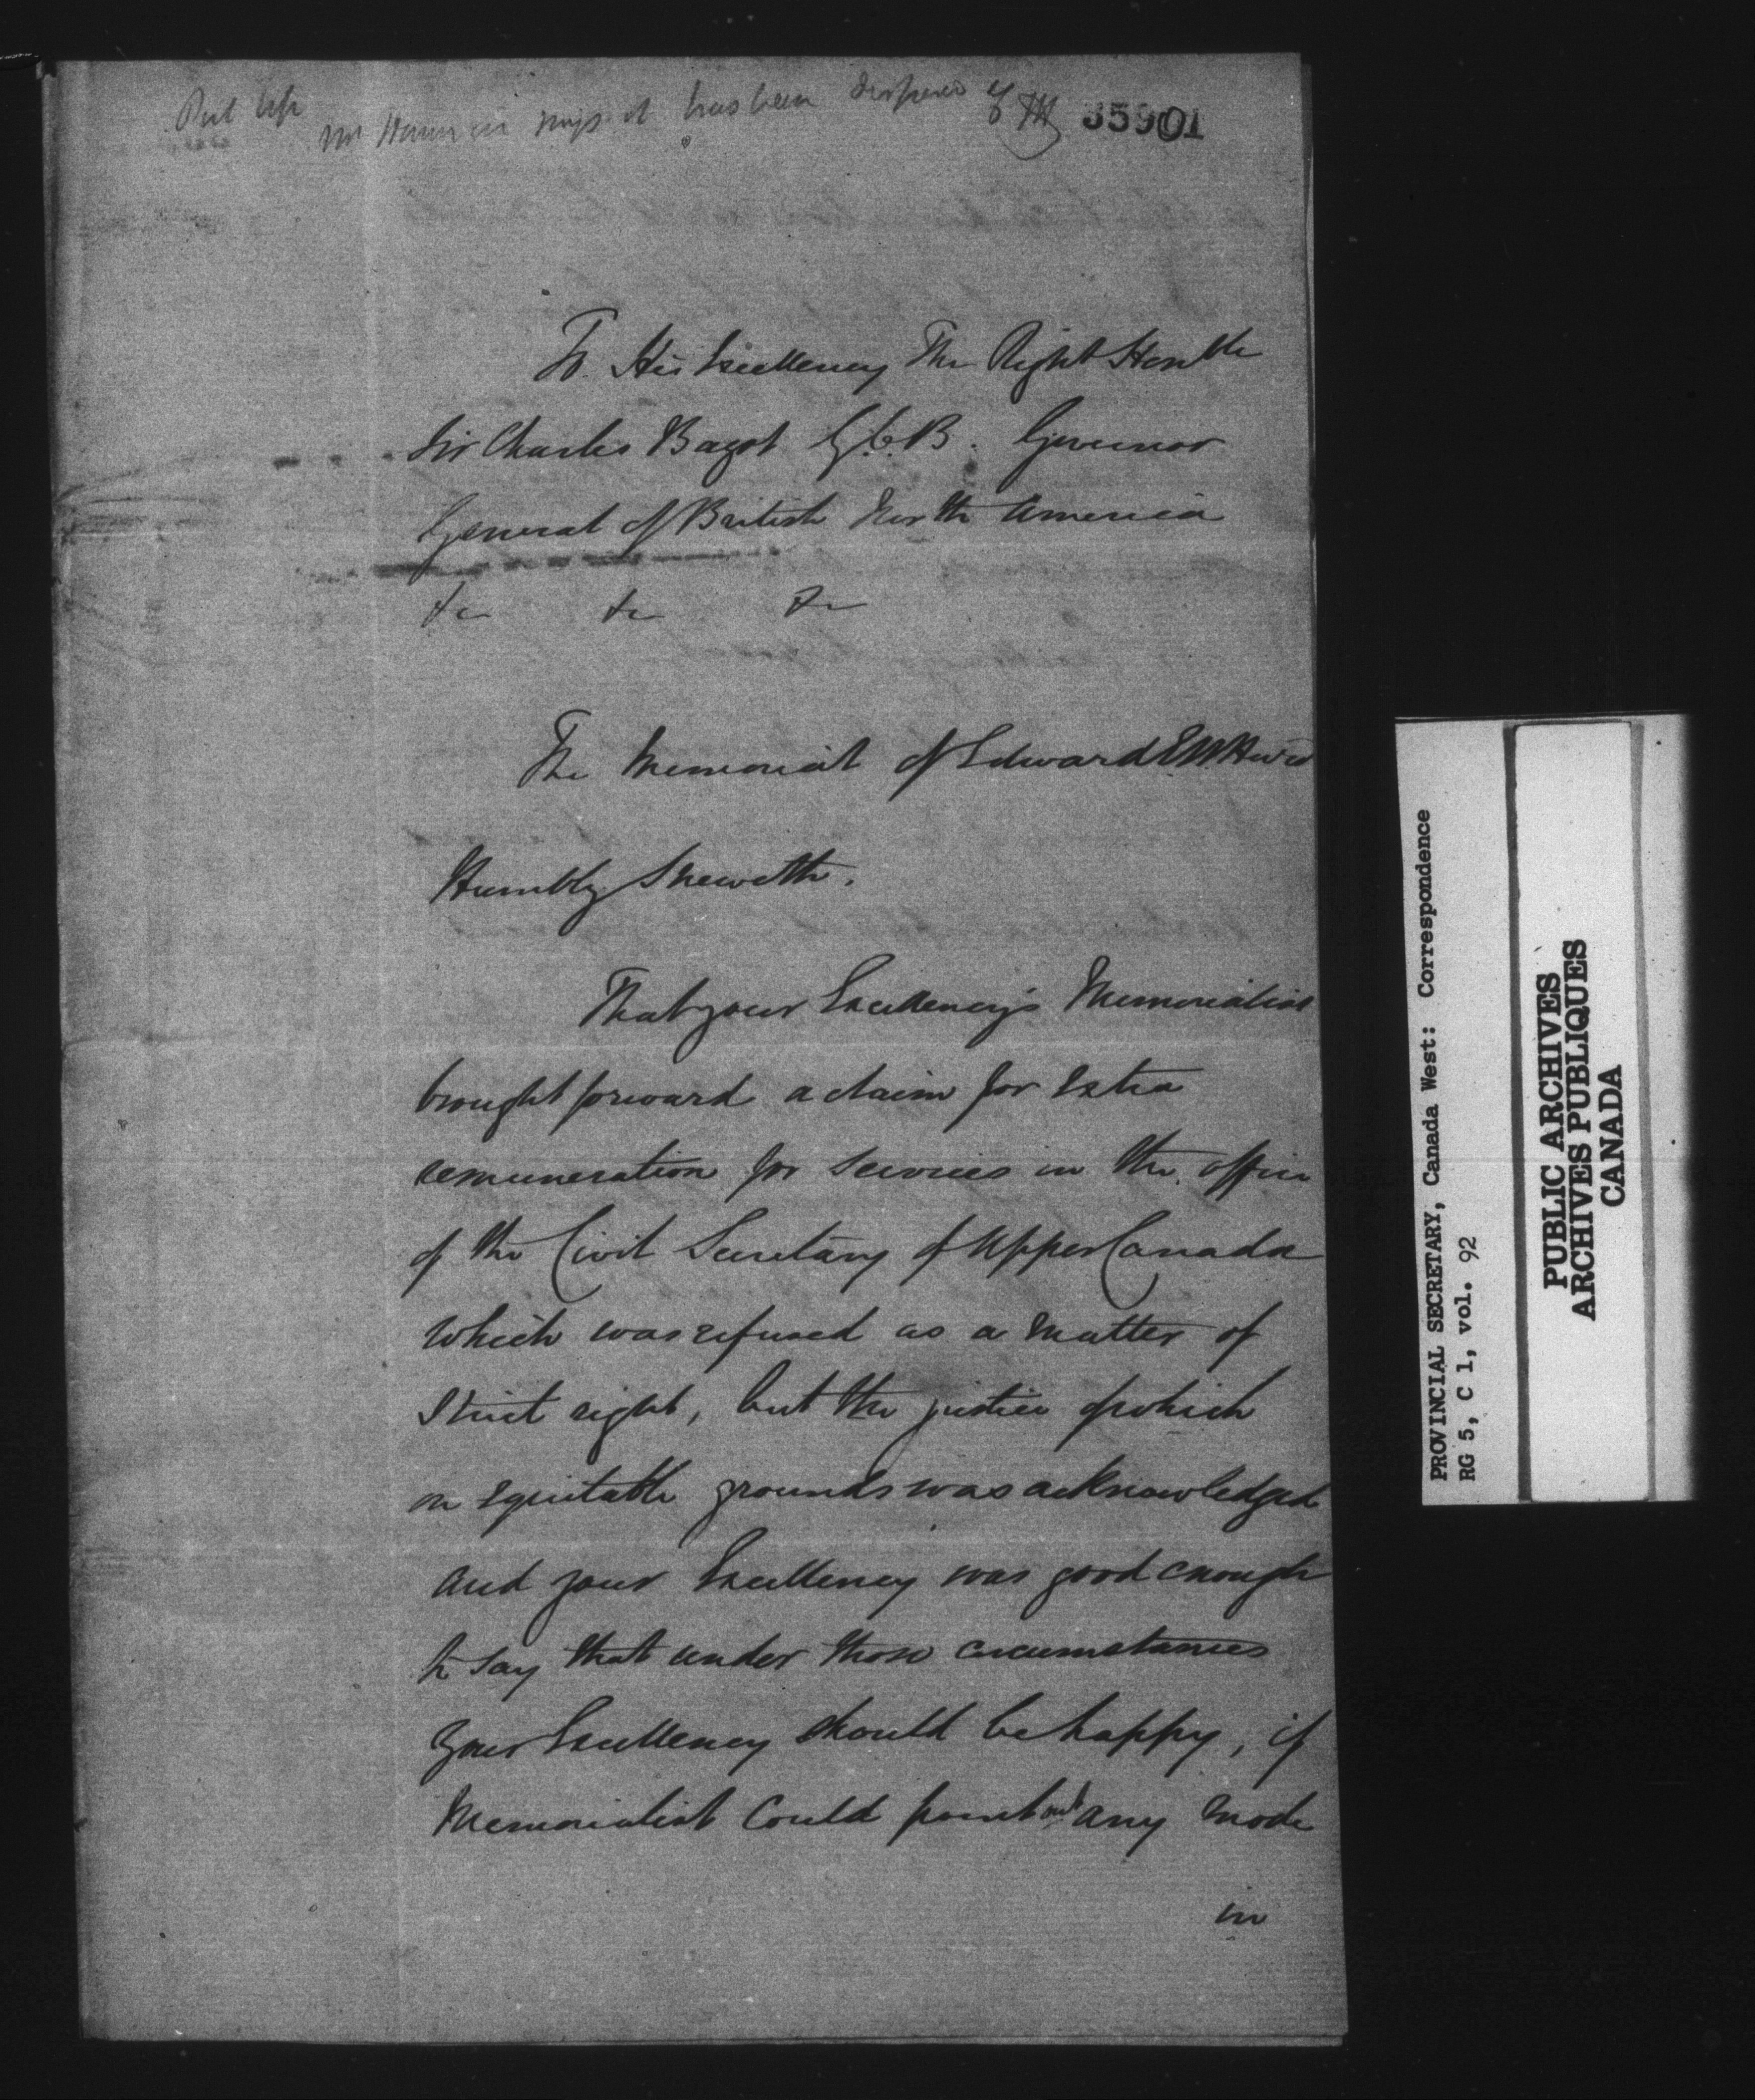 Put up
Mr says it has been disposed of
35901
To His Excellency The Right Honble
Sir Charles Bagot G.C.B. Governor
General of British North America
&c &c &c
The Memorial of Edward
Humbly Sheweth.
That your Excellency's Memorialist
brought forward a claim for Extra
remuneration for services in the office
of the Civil Secretary of Upper Canada
which was refused as a matter of
Strict right, but the justice of which
on equitable grounds was acknowledged
and your Excellency was good enough
to say that under those circumstances
your Excellency should be happy, if
Memorialist Could point out any mode
in
PROVINCIAL SECRETARY, Canada West: Correspondence
RG 5, C 1, vol. 92
PUBLIC ARCHIVES
ARCHIVES PUBLIQUES
CANADA